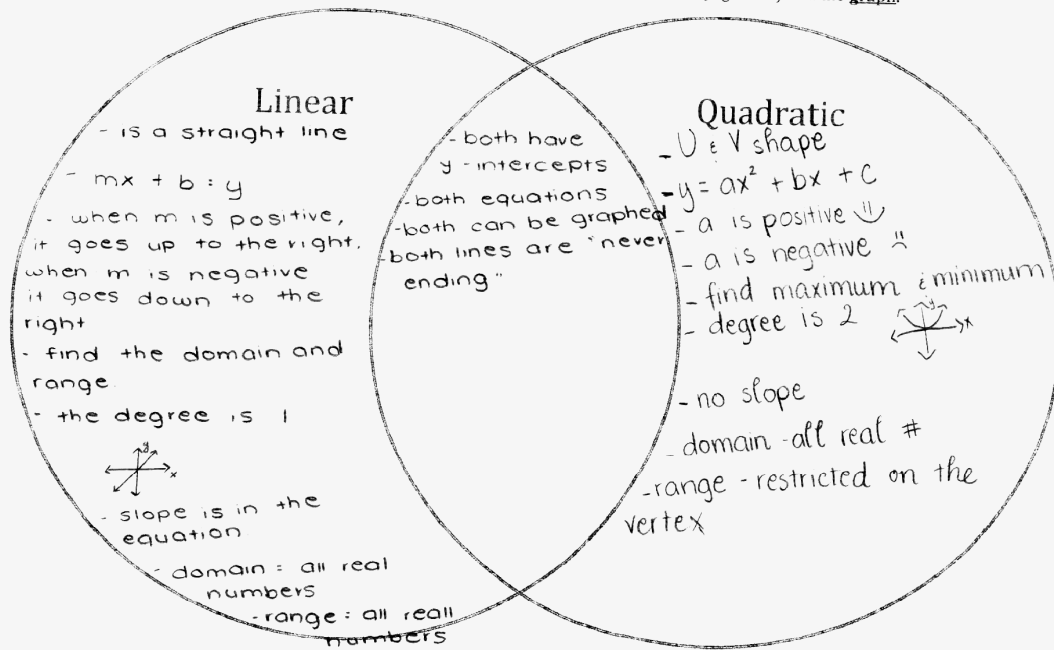 graph.
Linear
- is a straight line
- mx + b = y
- when m is positive,
it goes up to the right.
when m is negative
it goes down to the
right
- find the domain and
range.
- the degree is 1
y
x
- slope is in the
equation
- domain = all real
numbers
- range = all reall
numbers
- both have
y-intercepts
- both equations
- both can be graphed
- both lines are "never
ending"
Quadratic
- U & V shape
- y = ax² + bx + c
- a is positive
- a is negative
- find maximum & minimum
- degree is 2
y
x
- no slope
- domain - all real #
- range - restricted on the
vertex